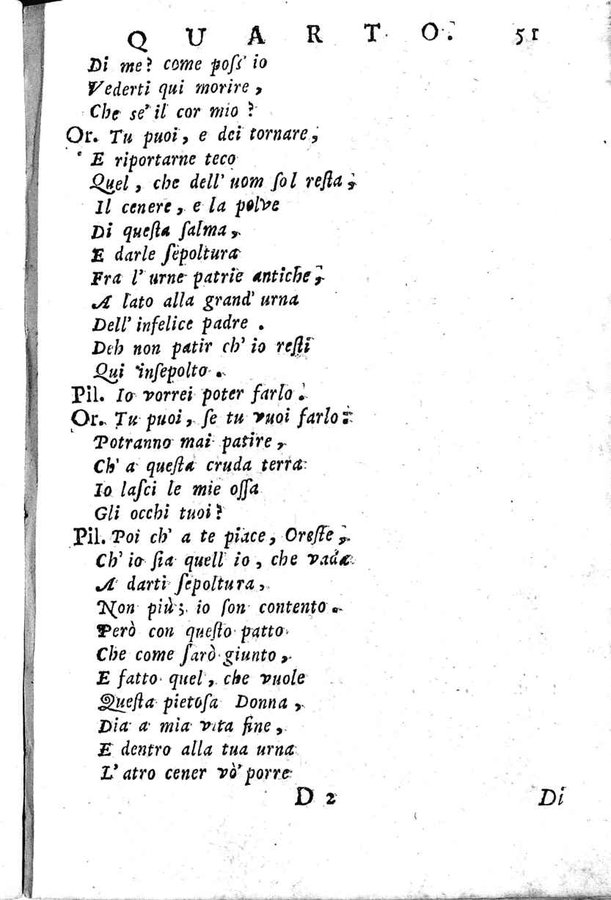 QUARTO. 51
Di me? come poss' io
Vederti qui morire,
Che se' il cor mio?
Or. Tu puoi, e dei tornare,
E riportarne teco
Quel, che dell' uom sol resta,
Il cenere, e la polve
Di queſta ſalma,
E darle ſepoltura
Fra l' urne patrie antiche,
A lato alla grand' urna
Dell' infelice padre.
Deh non patir ch' io reſti
Qui inſepolto.
Pil. Io vorrei poter farlo.
Or. Tu puoi, ſe tu vuoi farlo:
Potranno mai patire,
Ch' a queſta cruda terra
Io laſci le mie oſſa
Gli occhi tuoi?
Pil. Poi ch' a te piace, Oreſte,
Ch' io ſia quell' io, che vada
A darti ſepoltura,
Non più; io ſon contento.
Però con queſto patto
Che come ſarò giunto,
E fatto quel, che vuole
Queſta pietoſa Donna,
Dia a mia vita fine,
E dentro alla tua urna
L' atro cener vò' porre
D 2 Di